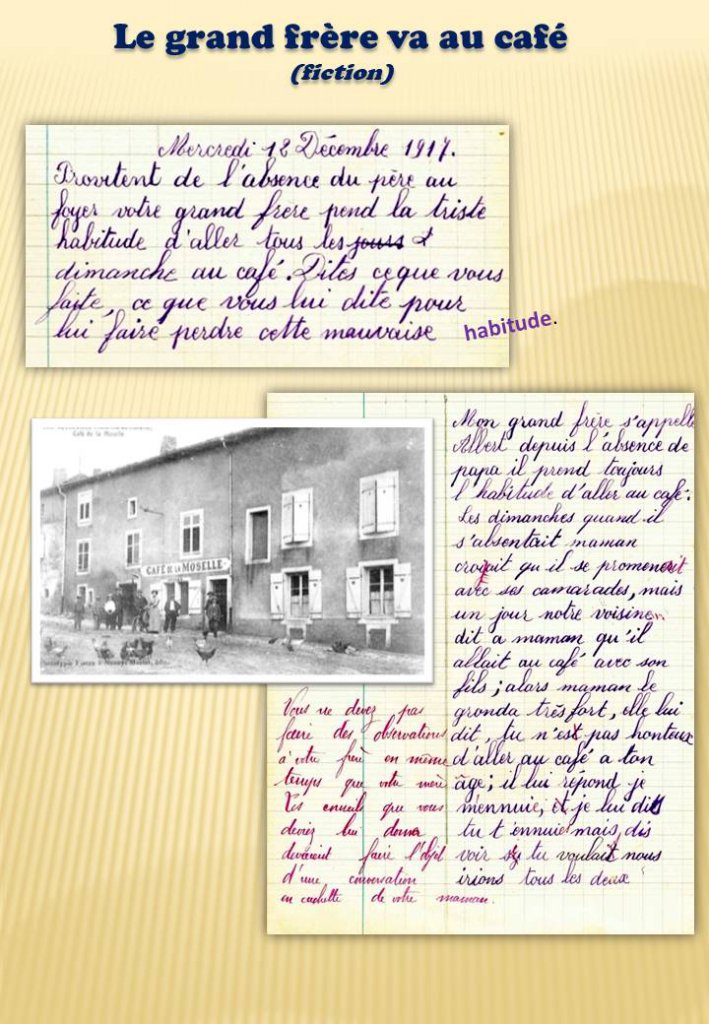 Le grand frère va au café
(fiction)
Mercredi 12 Décembre 1917.
Provitent de l'absence du père au
foyer votre grand frere pend la triste
habitude d'aller tous les jours &
dimanche au café. Dites ce que vous
faite, ce que vous lui dite pour
lui faire perdre cette mauvaise habitude.
Café de la Moselle
CAFÉ DE LA MOSELLE
Mon grand frère s'appelle
Albert depuis l'absence de
papa il prend toujours
l'habitude d'aller au café.
Les dimanches quand il
s'absentait maman
croyait qu'il se promenait
avec ses camarades, mais
un jour notre voisine
dit a maman qu'il
allait au café avec son
fils; alors maman le
gronda très fort, elle lui
dit, tu n'est pas honteux
d'aller au café a ton
âge; il lui répond je
m'ennuie, et je lui dit
tu t'ennuie mais, dis
voir si tu voulait nous
irions tous les deux
Vous ne devez pas
faire des observations
à votre frère en même
temps que votre mère
Les conseils que vous
devriez lui donner
devraient faire l'objet
d'une conversation
en cachette de votre maman.